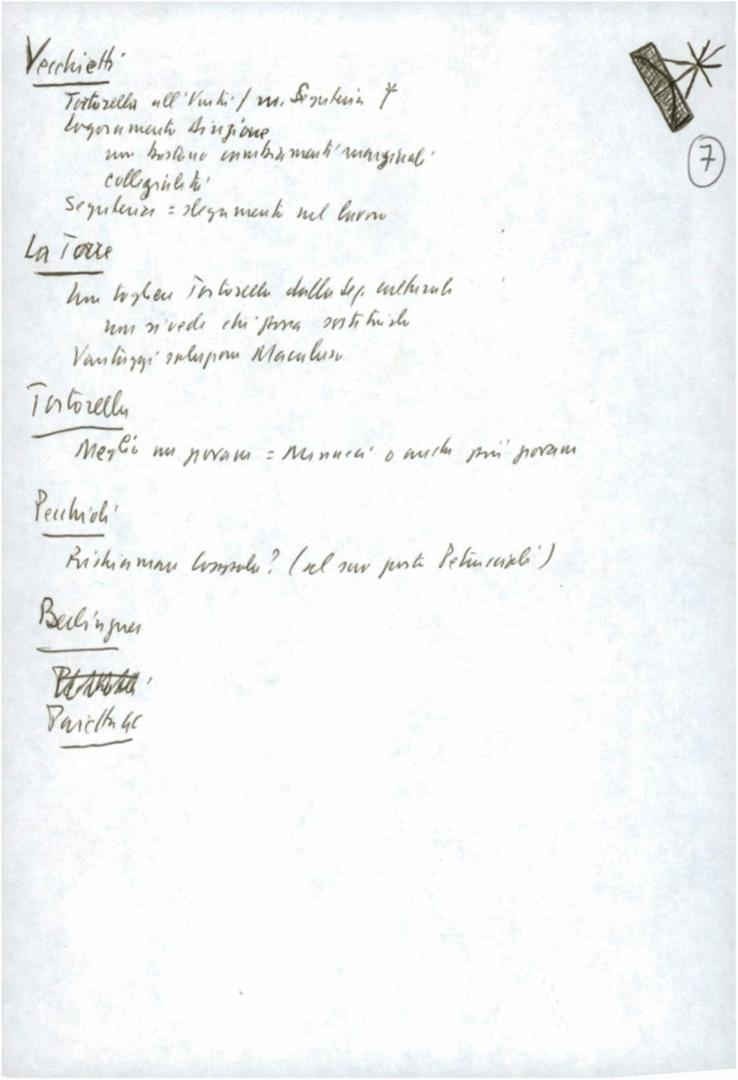 7
Vecchietti
Tortorella all'Unità / in Segreteria
Logoramento direzione
non bastano cambiamenti marginali
collegialità
Segreteria = slegamento nel lavoro
La Torre
Non togliere Tortorella dalla sez. culturale
non si vede chi possa sostituirlo
Vantaggi Macaluso
Tortorella
Meglio un giovane = Minucci o anche più giovani
Pecchioli
Richiamare Cossutta? (al suo posto Petruccioli)
Berlinguer
Pajetta GC